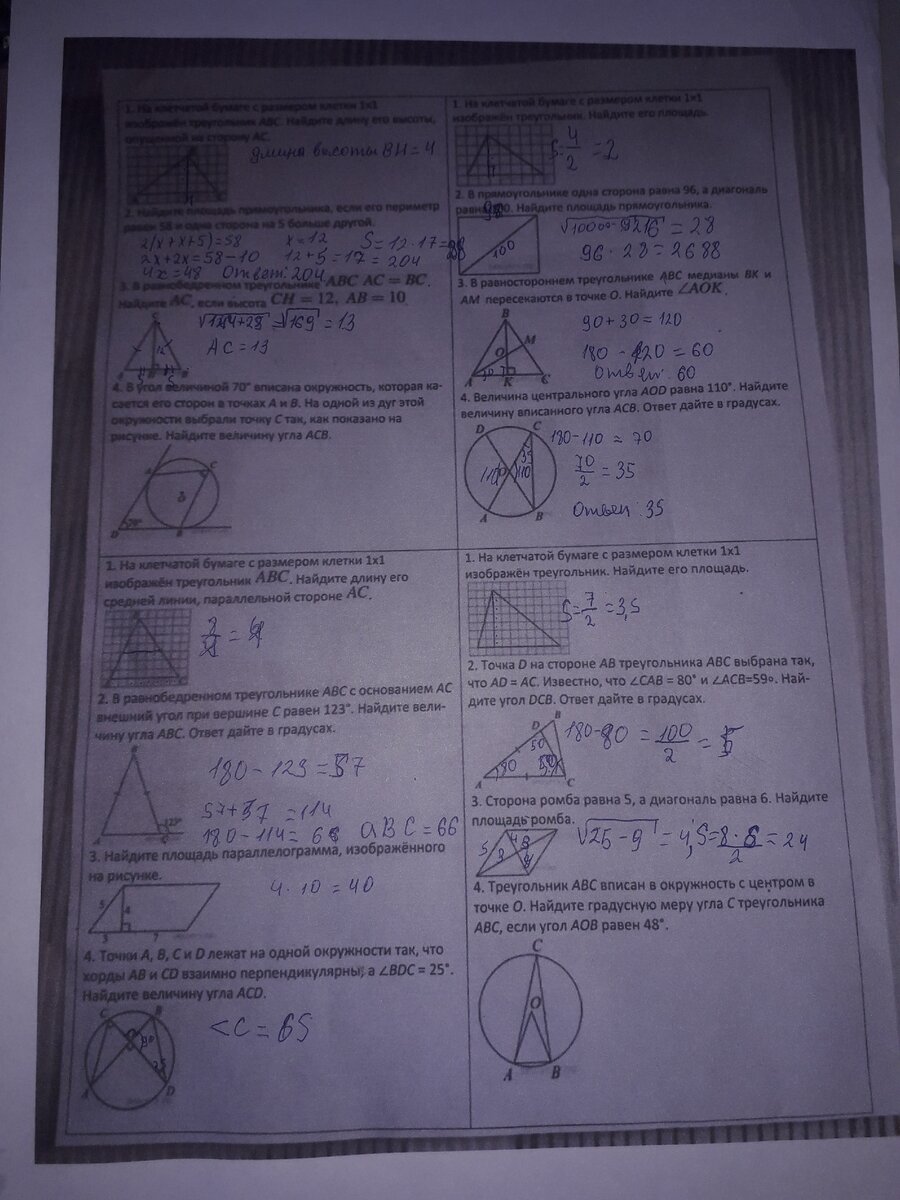 1. На клетчатой бумаге с размером клетки 1x1
изображён треугольник ABC. Найдите длину его высоты,
опущенной на сторону AC.
длина высоты BH = 4
2. Найдите площадь прямоугольника, если его периметр
равен 58 и одна сторона на 5 больше другой.
2(x+x+5)=58 x=12 S=12·17=
2x+2x=58-10 12+5=17 =204
4x=48 Ответ: 204
3. В равнобедренном треугольнике ABC AC = BC.
Найдите AC, если высота CH = 12, AB = 10
= √169 = 13
AC=13
4. В угол величиной 70° вписана окружность, которая ка-
сается его сторон в точках A и B. На одной из дуг этой
окружности выбрали точку C так, как показано на
рисунке. Найдите величину угла ACB.
A C
70°
D B
1. На клетчатой бумаге с размером клетки 1x1
изображён треугольник. Найдите его площадь.
S=4/2 =2
2. В прямоугольнике одна сторона равна 96, а диагональ
равна 100. Найдите площадь прямоугольника.
100
√10000-9216 = 28
96·28=2688
3. В равностороннем треугольнике ABC медианы BK и
AM пересекаются в точке O. Найдите ∠AOK.
B
O M
A K C
90+30=120
180-120=60
Ответ: 60
4. Величина центрального угла AOD равна 110°. Найдите
величину вписанного угла ACB. Ответ дайте в градусах.
D C
110 O 110
35
A B
180-110=70
70/2 =35
Ответ: 35
1. На клетчатой бумаге с размером клетки 1x1
изображён треугольник ABC. Найдите длину его
средней линии, параллельной стороне AC.
2. В равнобедренном треугольнике ABC с основанием AC
внешний угол при вершине C равен 123°. Найдите вели-
чину угла ABC. Ответ дайте в градусах.
B
123°
A C
180-123=57
57+57=114
180-114=66 ABC=66
3. Найдите площадь параллелограмма, изображённого
на рисунке.
5 4
3 7
4·10=40
4. Точки A, B, C и D лежат на одной окружности так, что
хорды AB и CD взаимно перпендикулярны, а ∠BDC = 25°.
Найдите величину угла ACD.
C B
90
25
A D
<C=65
1. На клетчатой бумаге с размером клетки 1x1
изображён треугольник. Найдите его площадь.
S=7/2 =3,5
2. Точка D на стороне AB треугольника ABC выбрана так,
что AD = AC. Известно, что ∠CAB = 80° и ∠ACB=59∘. Най-
дите угол DCB. Ответ дайте в градусах.
B
D
50
80
A C
180-80 = 100/2 =
3. Сторона ромба равна 5, а диагональ равна 6. Найдите
площадь ромба.
5 4 3
3
√25-9 = 4; S=8·6/2 =24
4. Треугольник ABC вписан в окружность с центром в
точке O. Найдите градусную меру угла C треугольника
ABC, если угол AOB равен 48°.
C
O
A B